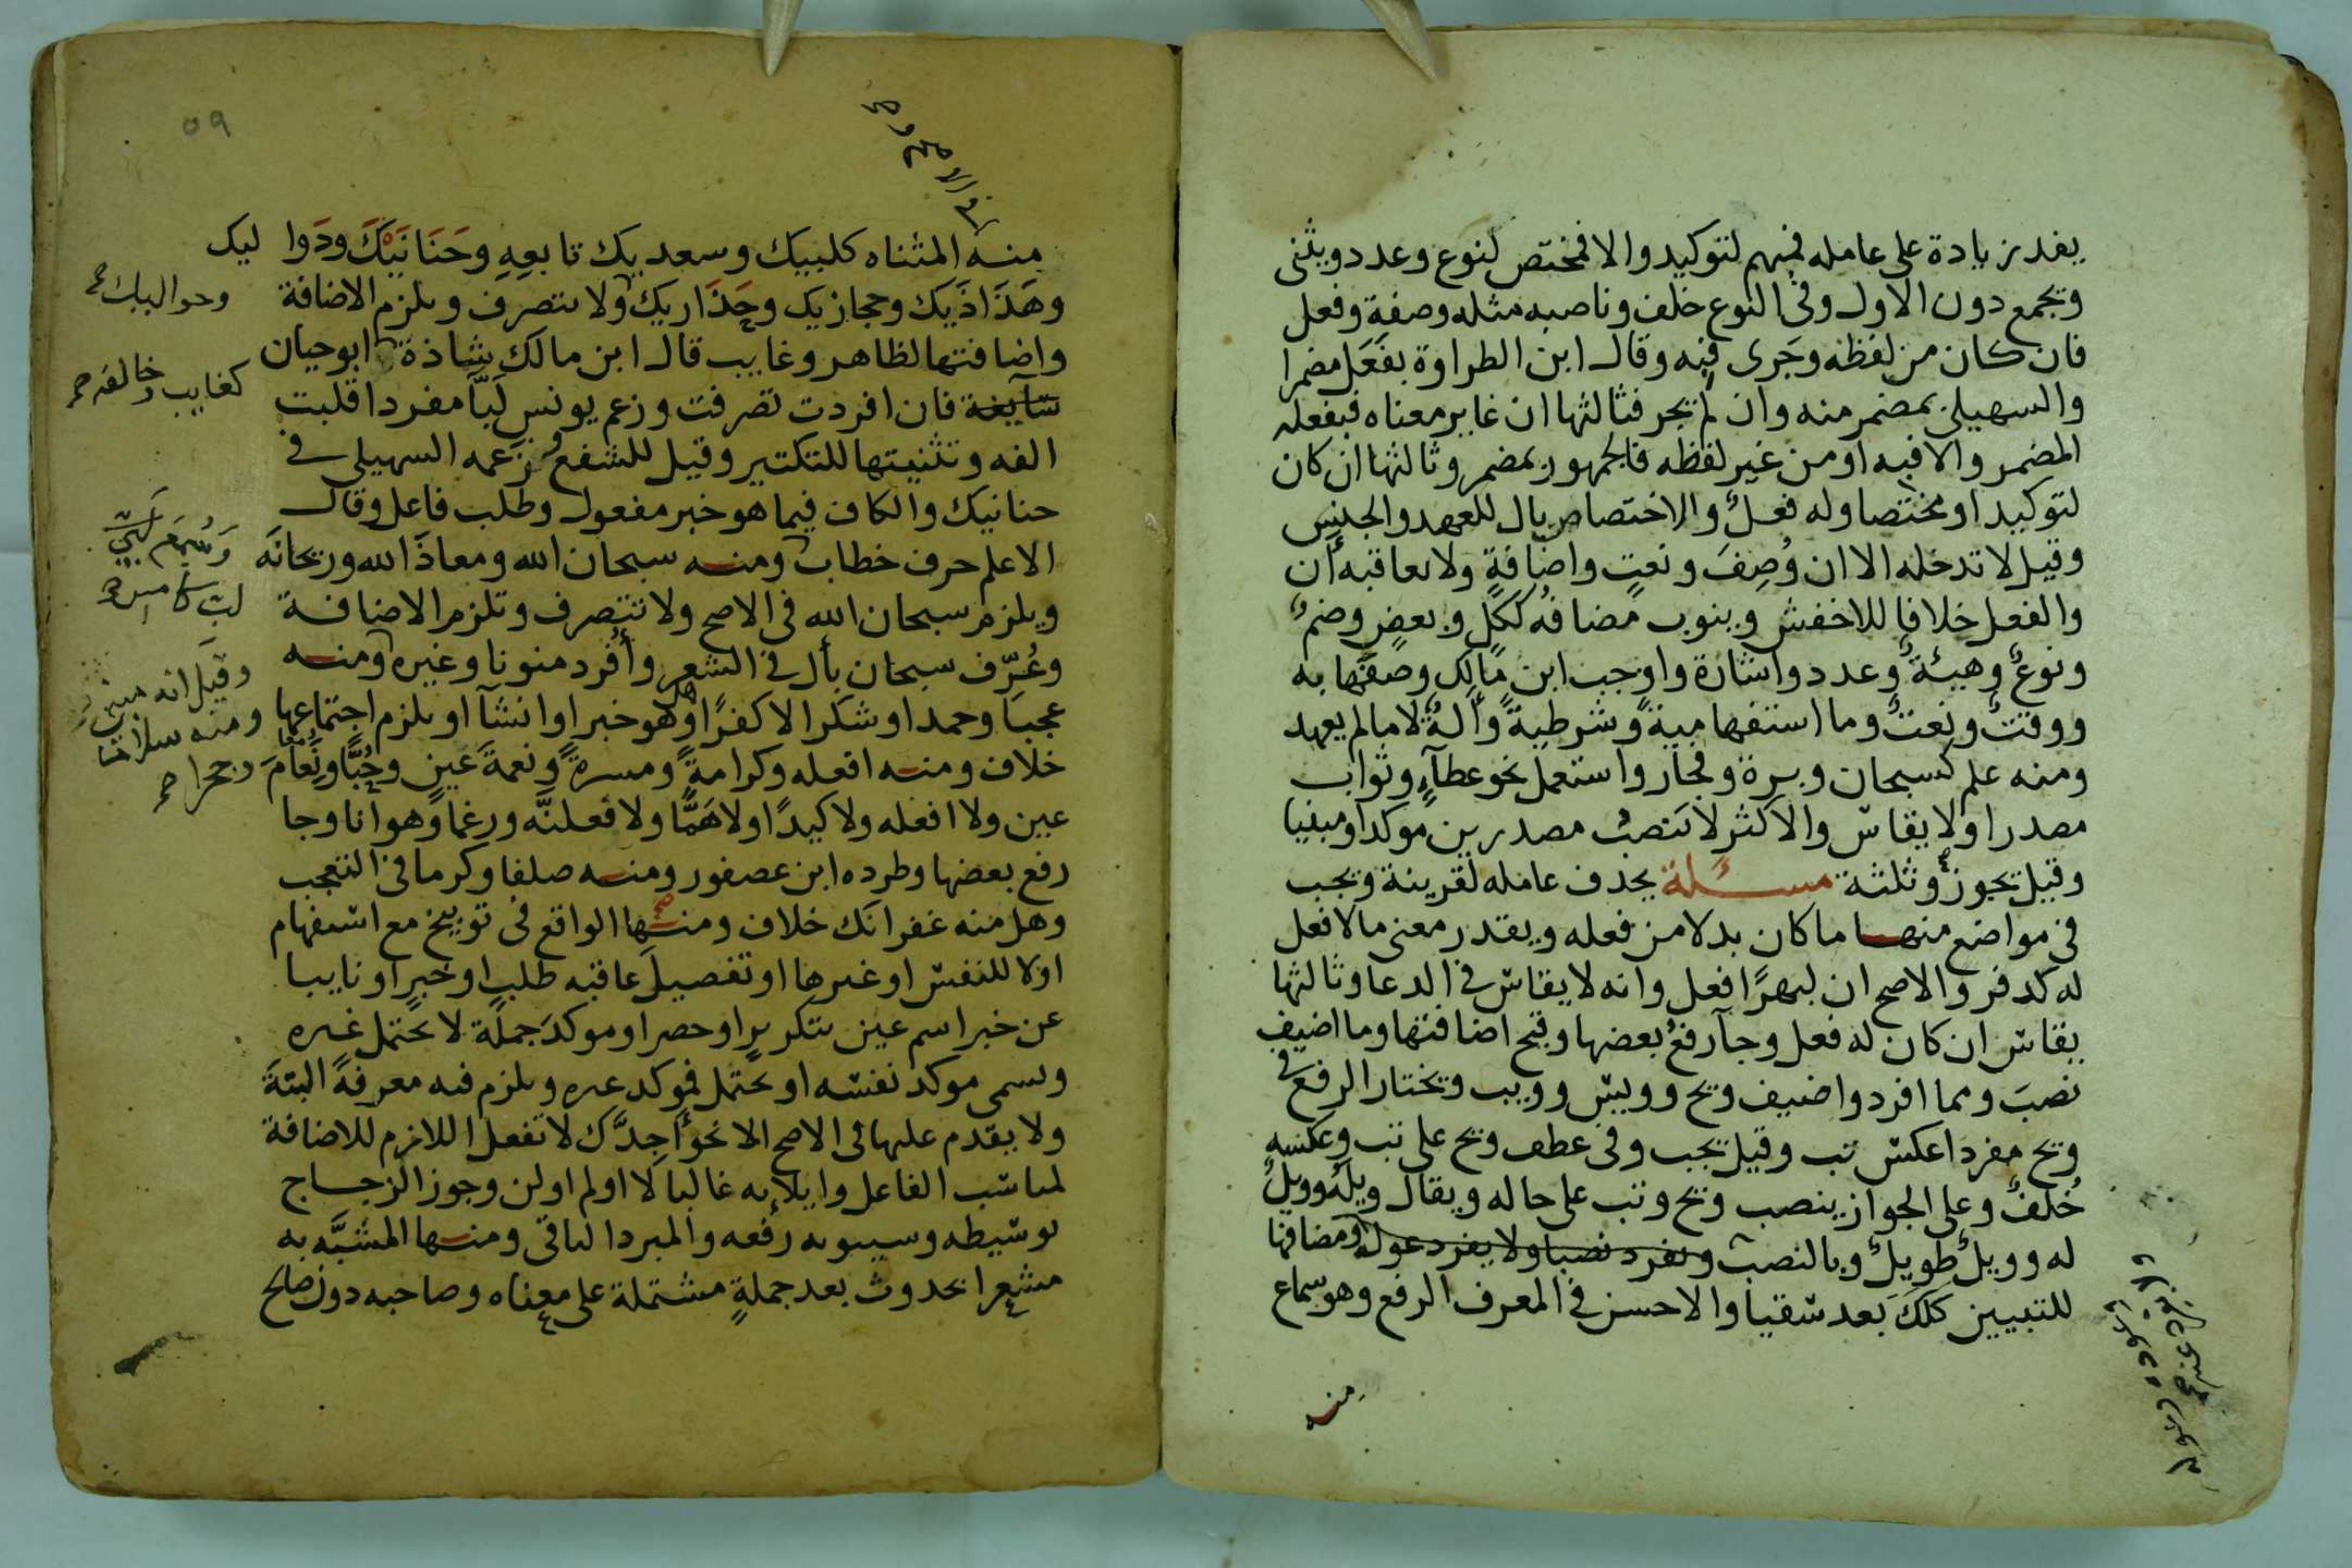 يفد زيادة على عامله فمبهم لتوكيد والا فمختص لنوع وعدد ويثنى
ويجمع دون الاول وفي النوع خلف وناصبه مثله وصفة وفعل
فان كان من لفظه وجَرى فبه وقال ابن الطراوة بفَعَل مضمرا
والسهيلي بمضمر منه وان لم يجر فثالثها ان غاير معناه فبفعله
المضمر والا فبه او من غير لفظه فالجمهور بمضمر وثالثها ان كان
لتوكيد او مختصا وله فعلٌ والاختصاص بال للعهد والجنس
وقيل لا تدخله الا ان وُصِفَ ونعتٍ واضافةٍ ولا يعاقبه أن
والفعل خلافا للاخفش وينوب مضافه ككلٍ وبعضٍ وضمٌ
ونوعٌ وهيئةٌ وعدد واشارة واوجب ابن مالك وصفها به
ووقتٌ ونعتٌ وما استفهامية وشرطية وآلةٌ لا ما لم يعهد
ومنه علم كسبحان وبرة وفجار واستعمل نحو عطآءٍ وثواب
مصدرا ولا يقاس والاكثر لا تنصب مصدرين موكدا ومبنيا
وقيل يجوز وثلثة مسئلة يحذف عامله لقرينة ويجب
في مواضع منها ما كان بدلا من فعله ويقدر معنى ما لا فعل
له كدفر والاصح ان لبهرًا فعل وانه لا يقاس في الدعا وثالثها
يقاس ان كان له فعل وجآ رفعُ بعضها وقبح اضافتها وما اضيف
نصبَ ومما افرد واضيف ويح وويس وويب ويختار الرفع في
ويح مفردا عكس تب وقيل يجب وفي عطف ويح على تب وعكسه
خُلفٌ وعلى الجواز ينصب ويح وتب على حاله ويقال ويلَهُ وويلٌ
له وويلٌ طويلٌ وبالنصب وتفرد نصبا ولا يفرد عوله ومضافها
للتبيين كلَكَ بعد سقيا والاحسن في المعرف الرفع وهو سماع
منه
٥٩
منه المثناه كلبيك وسعديك تابعهِ وحَنَانَيْكَ ودَوا ليك
وهَذَاذَيك وحجازيك وحَذَاريك ولا يتصرف ويلزم الاضافة
واضافتها لظاهر وغايب قال ابن مالك شاذة ابو حيان
سآيغة فان افردت تصرفت وزعم يونس لَبَّا مفردا قلبت
الفه وتثنيتها للتكثير وقيل للشفع وزعمه السهيلي في
حنانيك والكاف فيما هو خبر مفعول وطلب فاعل وقال
الاعلم حرف خطاب ومنه سبحان الله ومعاذَ الله وريحانَه
ويلزم سبحان الله في الاصح ولا تتصرف وتلزم الاضافة
وعُرّف سبحان بأل في الشعر وأُفرد منونا وغيره ومنه
عجبا وحمدا وشكرا لا كفرًا وهل هو خبر او انشآ او يلزم اجتماعها
خلاف ومنه افعله وكرامةً ومسرةً ونعمةَ عينٍ وحُبًّا ونُعَامَ
عين ولا افعله ولا كيدًا ولا هَمًّا ولا فعلنَّه ورغما وهوانا وجا
رفع بعضها وطرده ابن عصفور ومنه صلفا وكرما في التعجب
وهل منه غفرانَك خلاف ومنها الواقع في توبيخ مع استفهام
اولا للنفس او غيرها او تفصيل عاقبه طلبٍ او خبرٍ او نايبا
عن خبر اسم عين بتكريرٍ او حصر او موكدَ جملة لا يحتمل غيره
ويسمى موكد نفسه او يحتمل فموكد غيره ويلزم فيه معرفةً البتةَ
ولا يقدم عليها في الاصح الا نحو أجِدَّك لا تفعل اللازم للاضافة
لمناسب الفاعل وايلائه غالبا لا او لم او لن وجوز الزجاج
توسيطه وسيبويه رفعه والمبرد الباقي ومنها المشبَّه به
مشعرا بحدوث بعد جملةٍ مشتملة على معناه وصاحبه دون صالح
كغايب وخالفه صح
وقيل انه مبني